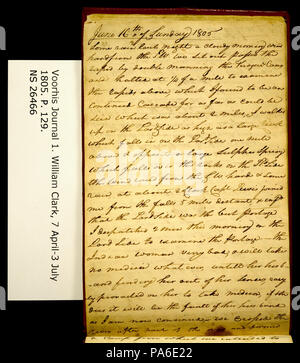 Voorhis Journal 1. William Clark, 7 April-3 July
1805. P. 129.
NS 26466
June 16th of Sunday 1805
Some rain last night a cloudy morning wind
hard from the SW we Set out passed the
rapid by double manning the Perogue & Canoes
and halted at 1/4 of a mile to examine
the rapids above, which I found to be an
Continued Cascade for as far as could be
Seen which was about 2 miles, I walked
up on the Lard Side as high as a large Creek
which falls in on the Lard Side one mile
above & opposit a large Sulpher Spring
which falls over the rocks on the Std Side
the wind from the S.W. hard & Some
rain, at about 2 oClock Capt Lewis joined
me from the falls 5 miles distant, &
that the Lard Side was the best portage
I despatched 2 men this morning on the
Lard Side to examine the portage. the
Indian woman verry bad, & will take
no medisin what ever, untill her husband
finding her out of her Sences, easyly
provailed on her to take medison, if She
dies it will be the fault of her husband
as I am now convinced. we crossed the
river after part of the day and formed
a Camp from which we intended to
alamy
PA6E22